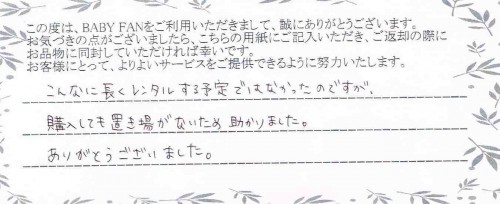 この度は、BABY FANをご利用いただきまして、誠にありがとうございます。
お気づきの点がございましたら、こちらの用紙にご記入いただき、ご返却の際に
お品物に同封していただければ幸いです。
お客様にとって、よりよいサービスをご提供できるように努力いたします。
こんなに長くレンタルする予定ではなかったのですが、
購入しても置き場がないため助かりました。
ありがとうございました。